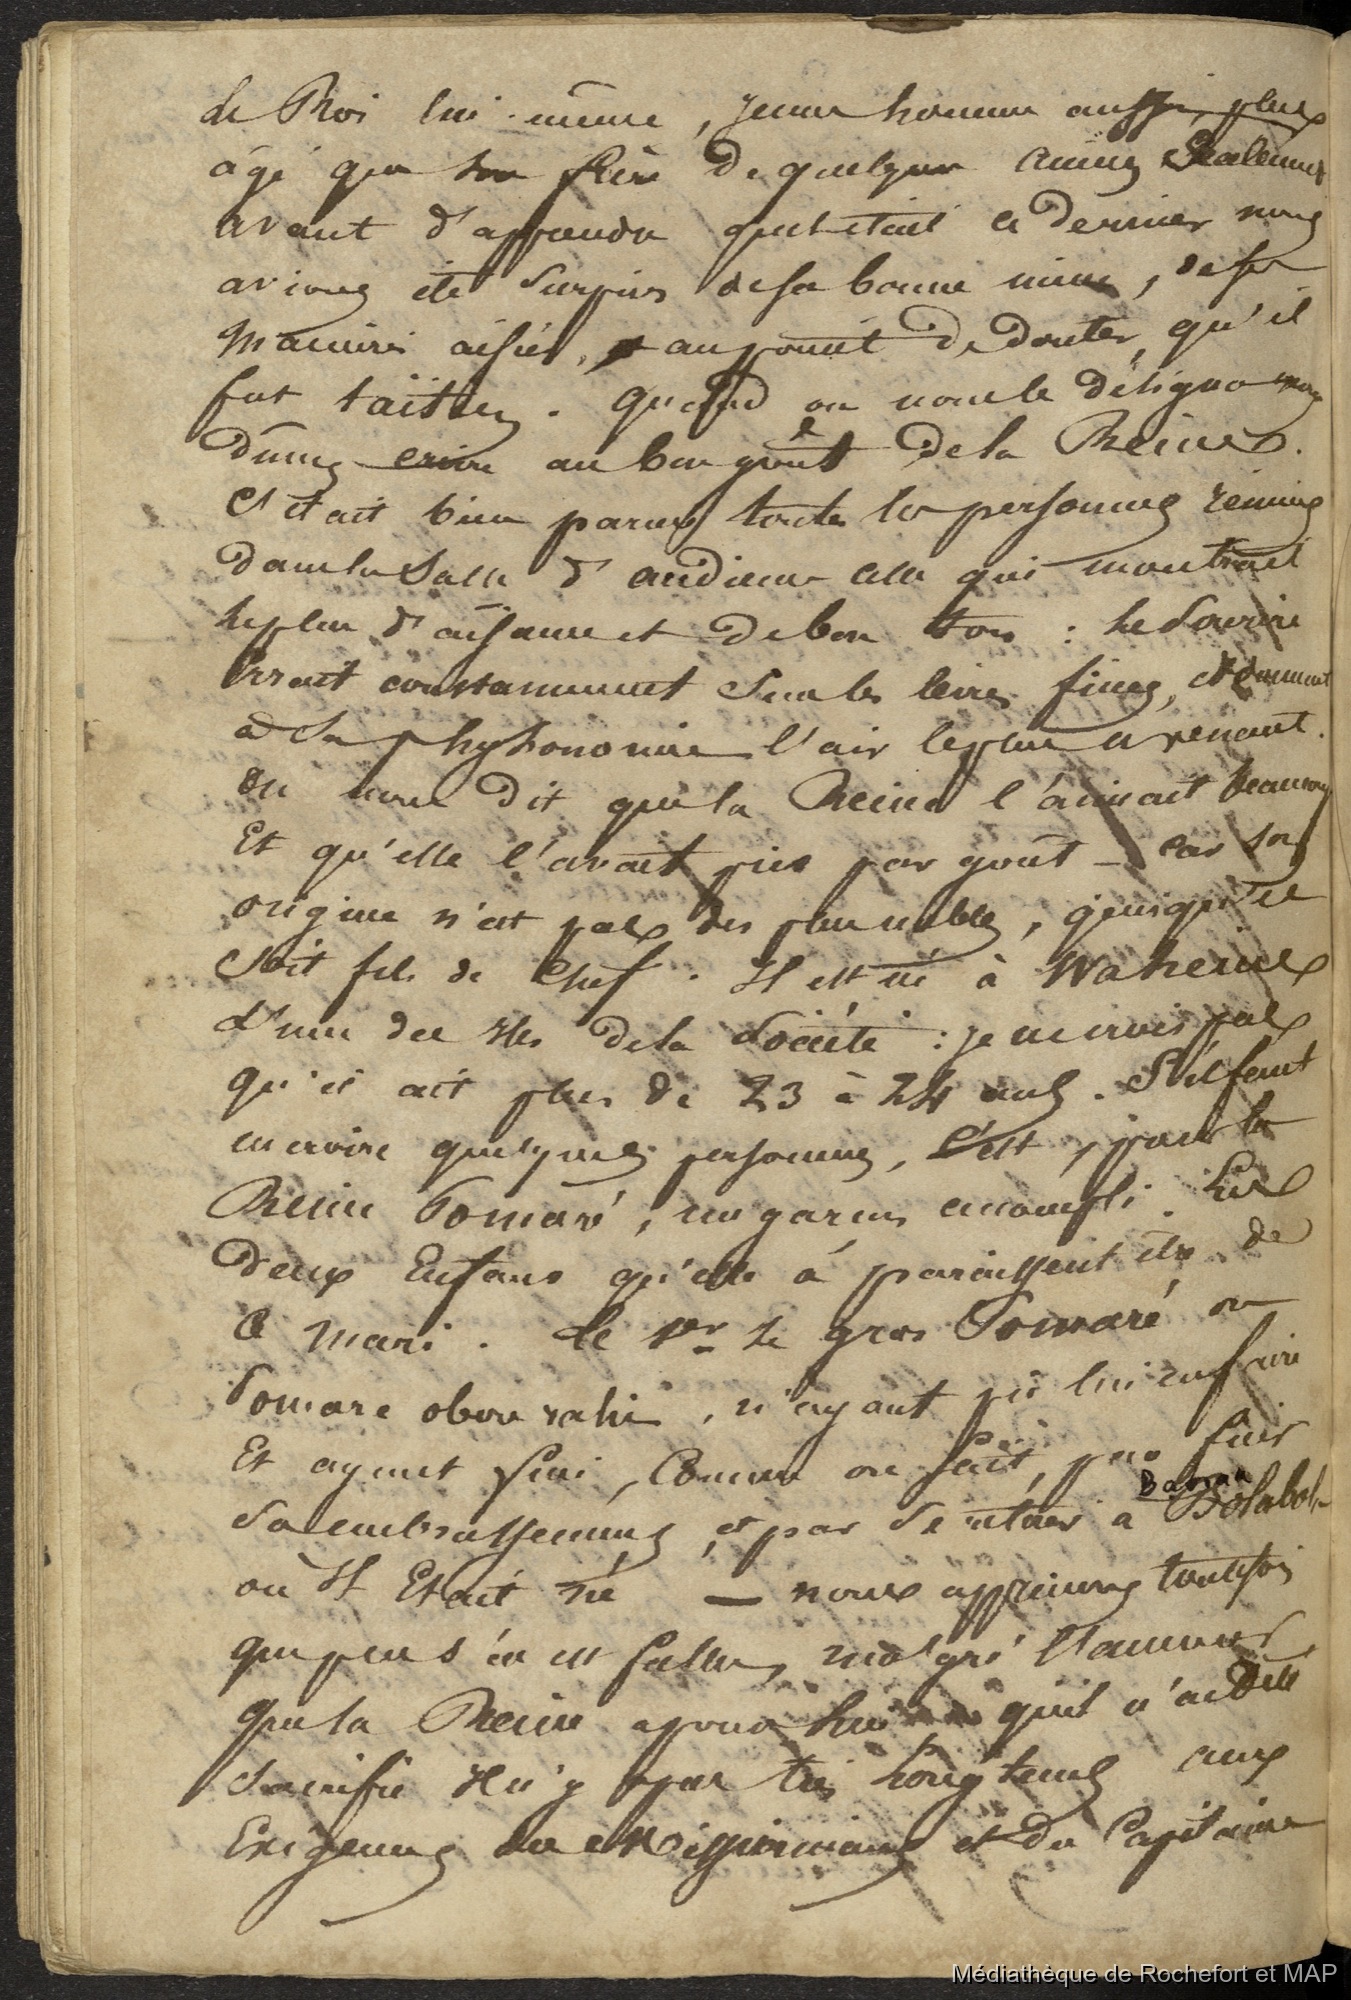 le Roi lui-même, jeune homme aussi, plus
âgé que son frère de quelques années seulement
avant d'apprendre quel était ce dernier nous
avions été surpris de sa bonne mine, de ses
manières aisées, au point de douter qu'il
fut taïtien. Quand on nous le désigna nous
dûmes croire au bon goût de la Reine.
C'était bien parmi toutes les personnes réunies
dans la salle d'audience celle qui montrait
le plus d'aisance et de bon ton : le sourire
errait constamment sur les lèvres fines, et donnait
à sa physionomie l'air le plus avenant.
On nous dit que la Reine l'aimait beaucoup
Et qu'elle l'avait pris par goût — car son
origine n'est pas des plus nobles, quoiqu'il
soit fils de chef. Il est né à Waheine
l'une des Iles de la Société : je ne crois pas
qu'il ait plus de 23 à 24 ans. S'il faut
en croire quelques personnes, C'est, pour la
Reine Pomaré, un garçon accompli. Les
deux Enfans qu'elle à paraissent être de
ce mari. Le 1er le gros Pomaré ou
Pomare obou rahi, n'ayant pû lui en faire
Et ayant fini, Comme on sait, par fuir
sa embrassemens, et par se retirer à Bolabola
où Il Etait né — nous apprimes toutefois
que peu s'en est fallu, malgré l'amour
que la Reine a pour lui qu'il n'ait été
sacrifié Il n'y a pas très longtems aux
Exigences des Missionnaires et du Capitaine
Médiathèque de Rochefort et MAP